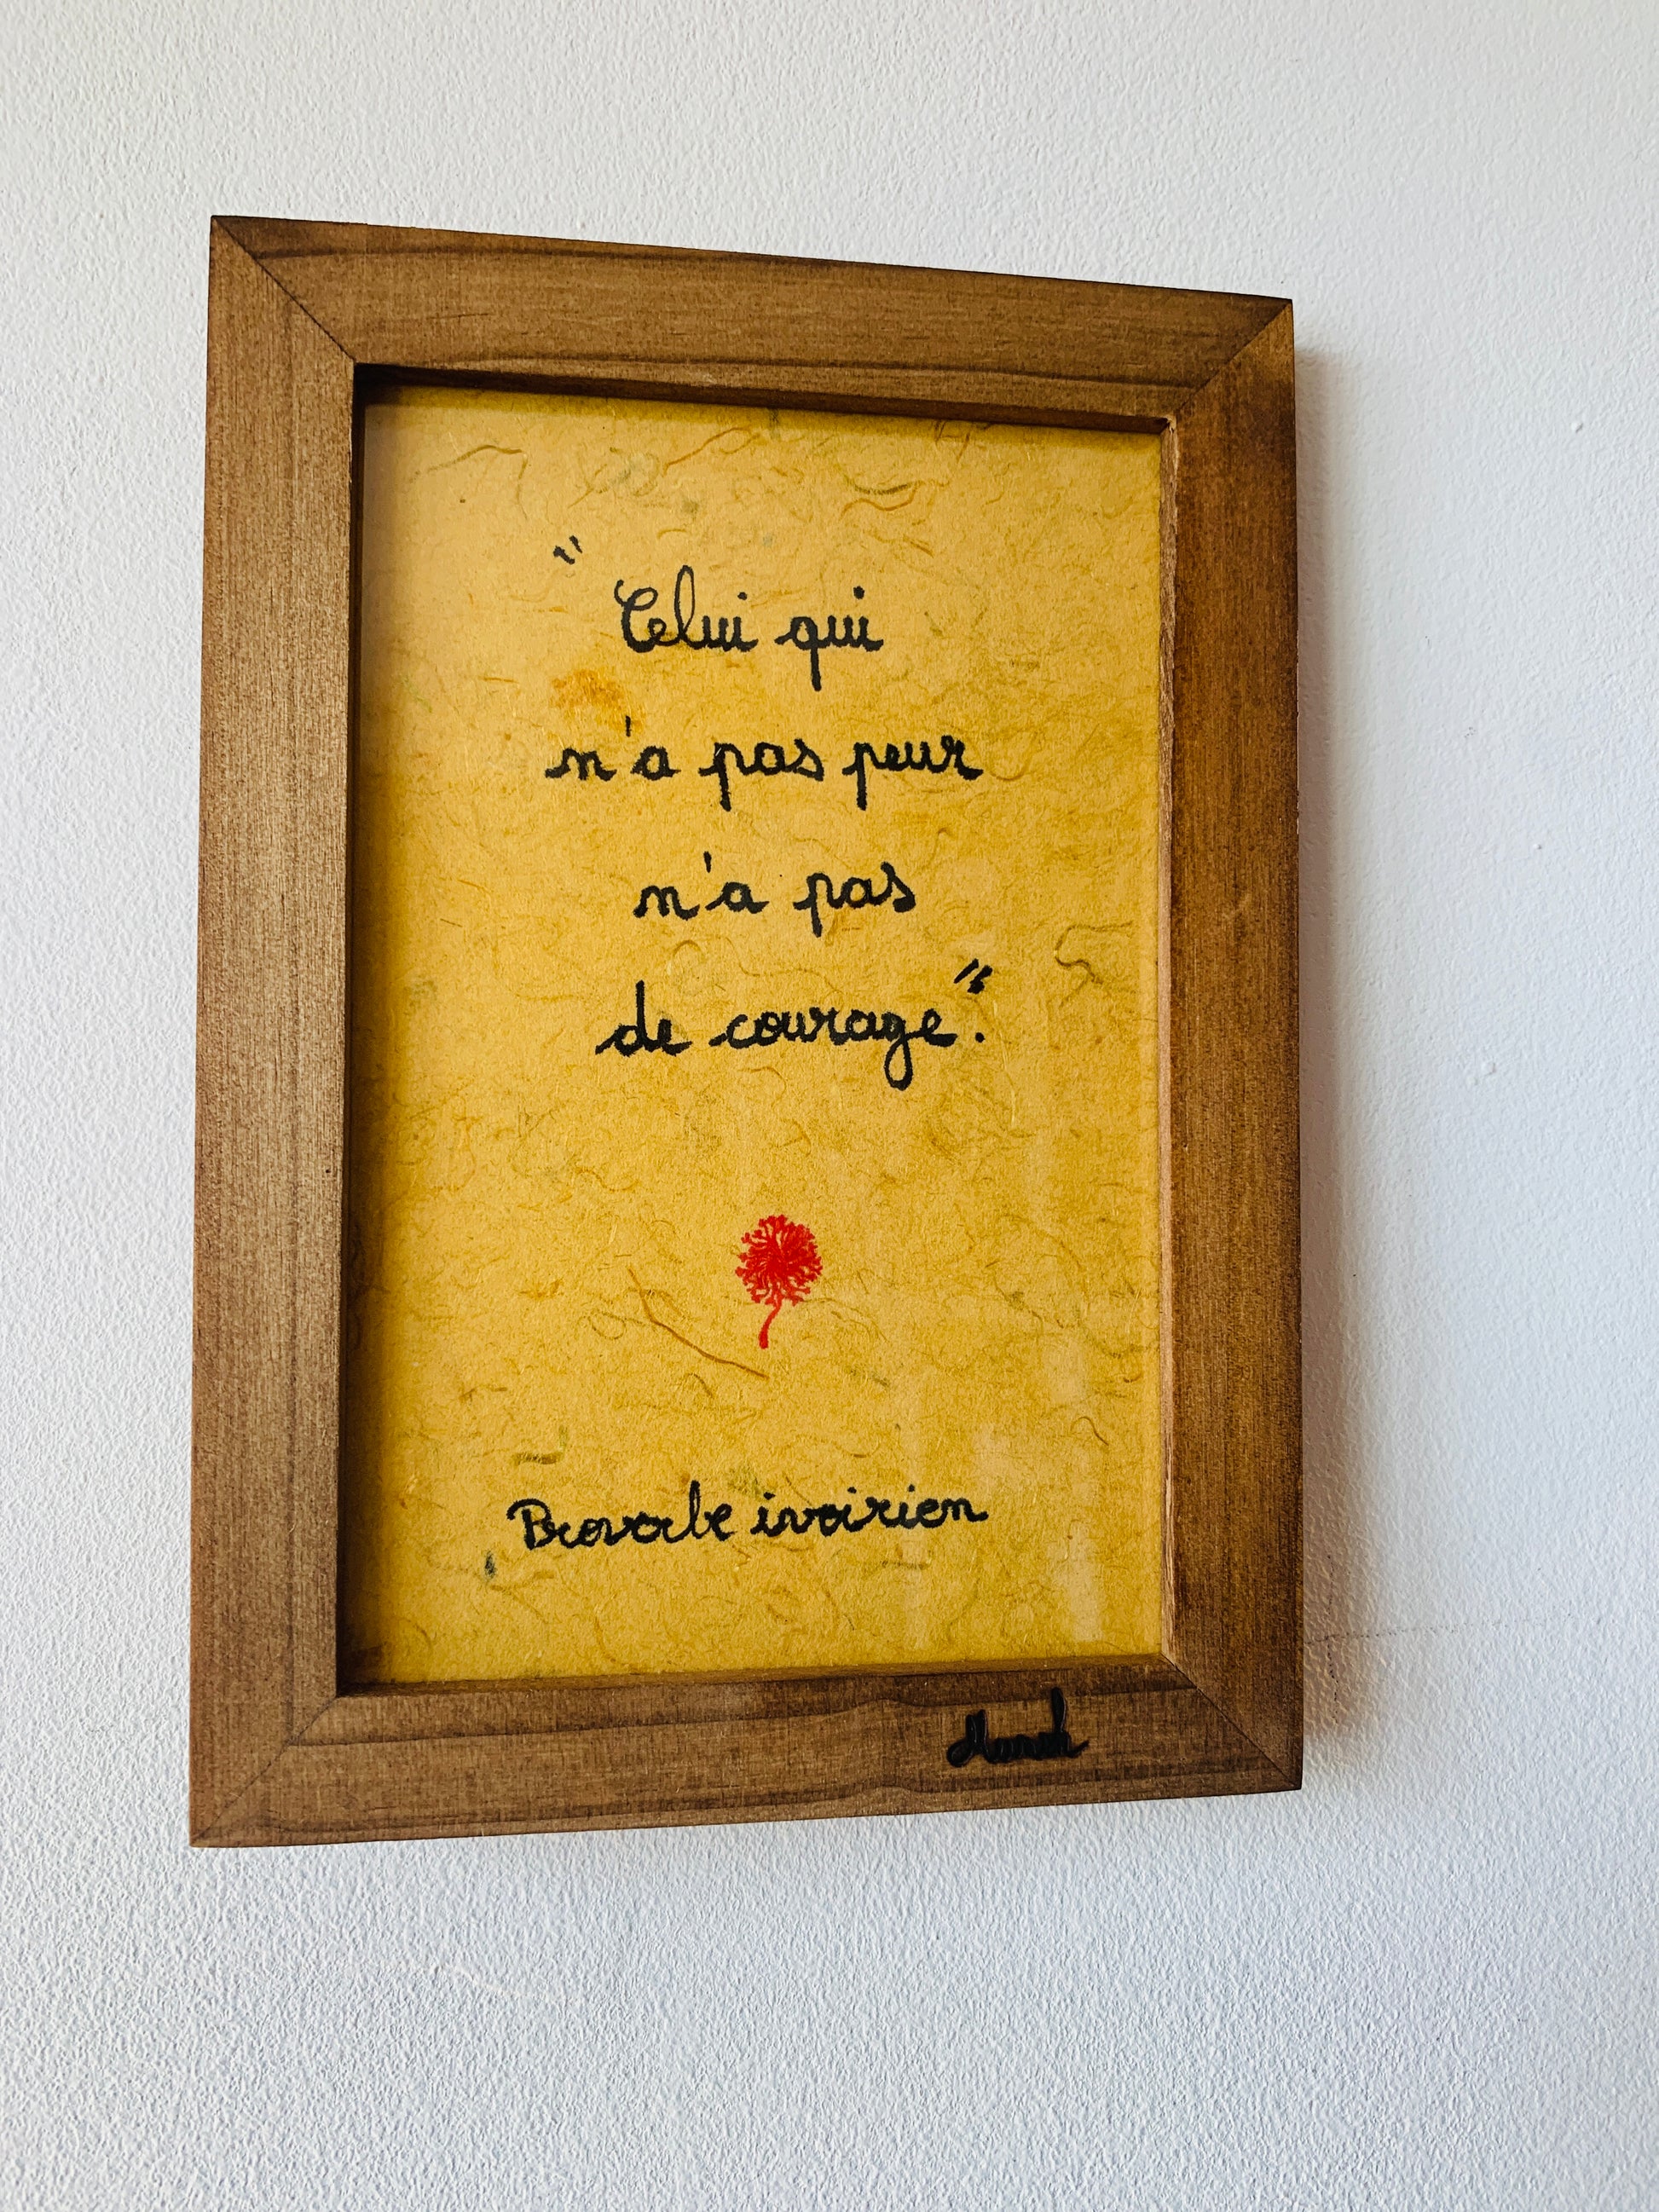 "Celui qui
n'a pas peur
n'a pas
de courage".
Proverbe ivoirien